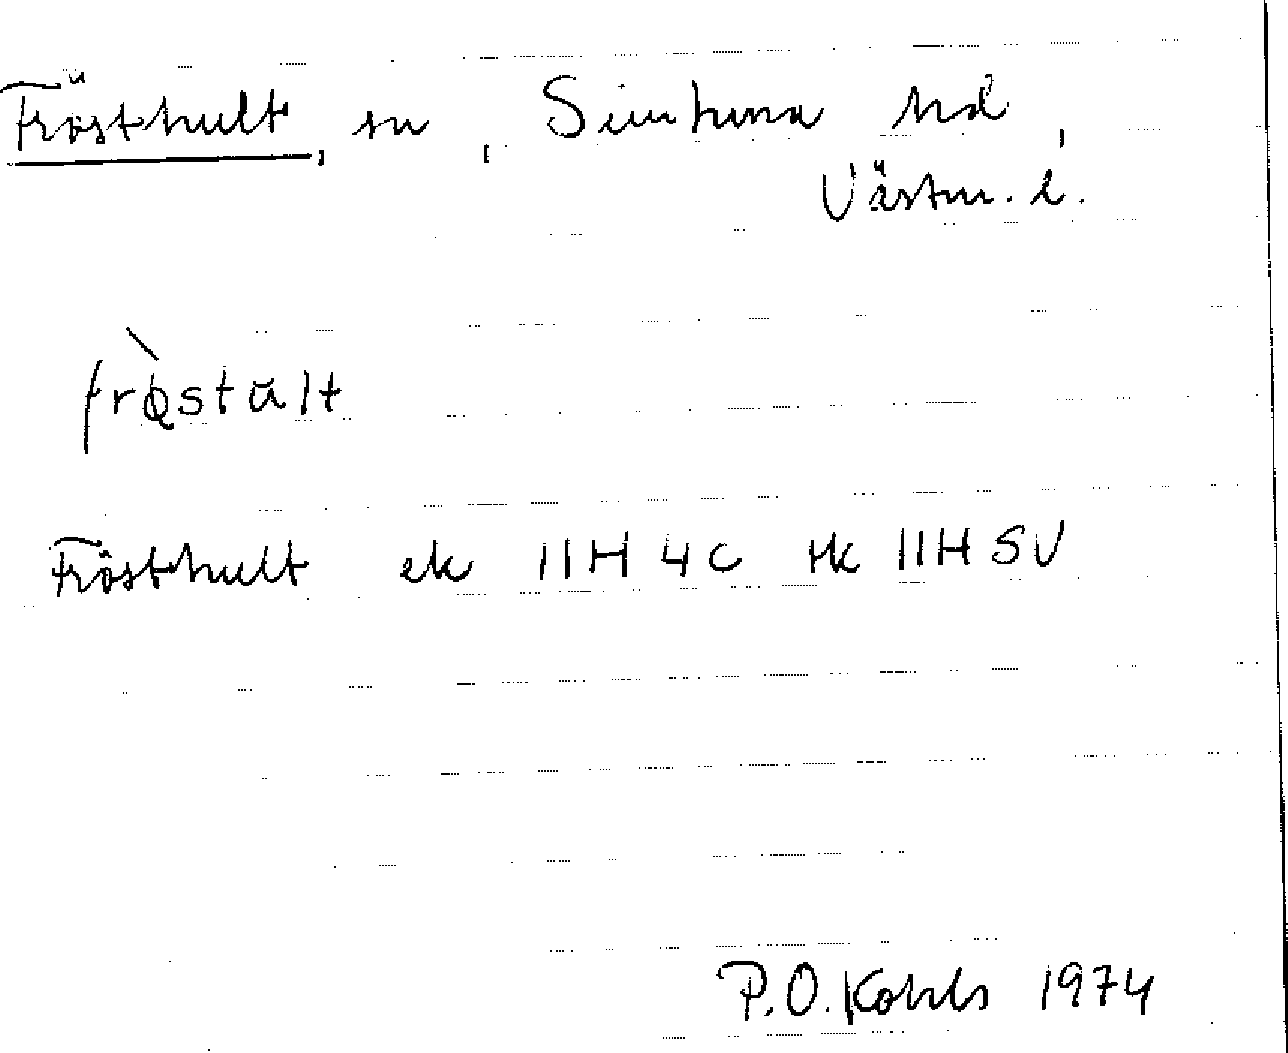 Frösthult, sn, Simtuna hd,
Västm. l.
frø̀stult
Frösthult ek 11H 4c tk 11H SV
P.O. Kohls 1974